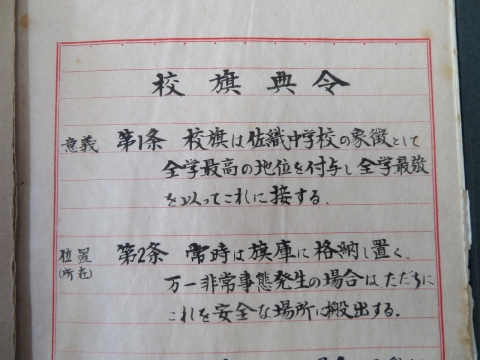 校旗典令
意義 第1条 校旗は佐織中学校の象徴として
全学最高の地位を付与し全学最敬
を以ってこれに接する.
位置(所在) 第2条 常時は旗庫に格納し置く.
万一非常事態発生の場合はただちに
これを安全な場所に搬出する.